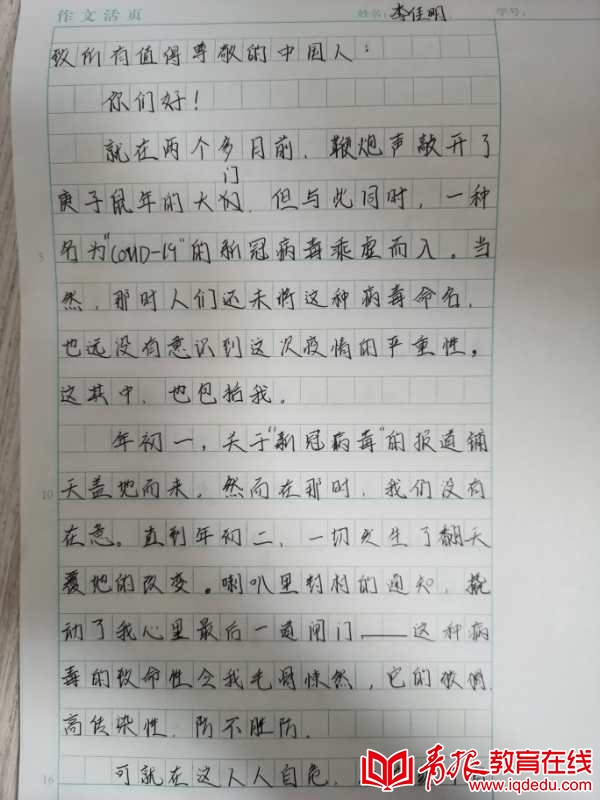 作文活页 姓名: 李佳明 学号:
致所有值得尊敬的中国人：
你们好！
就在两个多月前，鞭炮声敲开了
庚子鼠年的大门，但与此同时，一种
名为“COVID-19”的新冠病毒乘虚而入。当
然，那时人们还未将这种病毒命名，
也远没有意识到这次疫情的严重性。
这其中，也包括我。
5
年初一，关于“新冠病毒”的报道铺
天盖地而来。然而在那时，我们没有
10
在意。直到年初二，一切发生了翻天
覆地的改变。喇叭里封村的通知，撬
动了我心里最后一道闸门——这种病
毒的致命性令我毛骨悚然，它的
高传染性，防不胜防。
可就在这人人自危，
16
青报教育在线
www.iqdedu.com